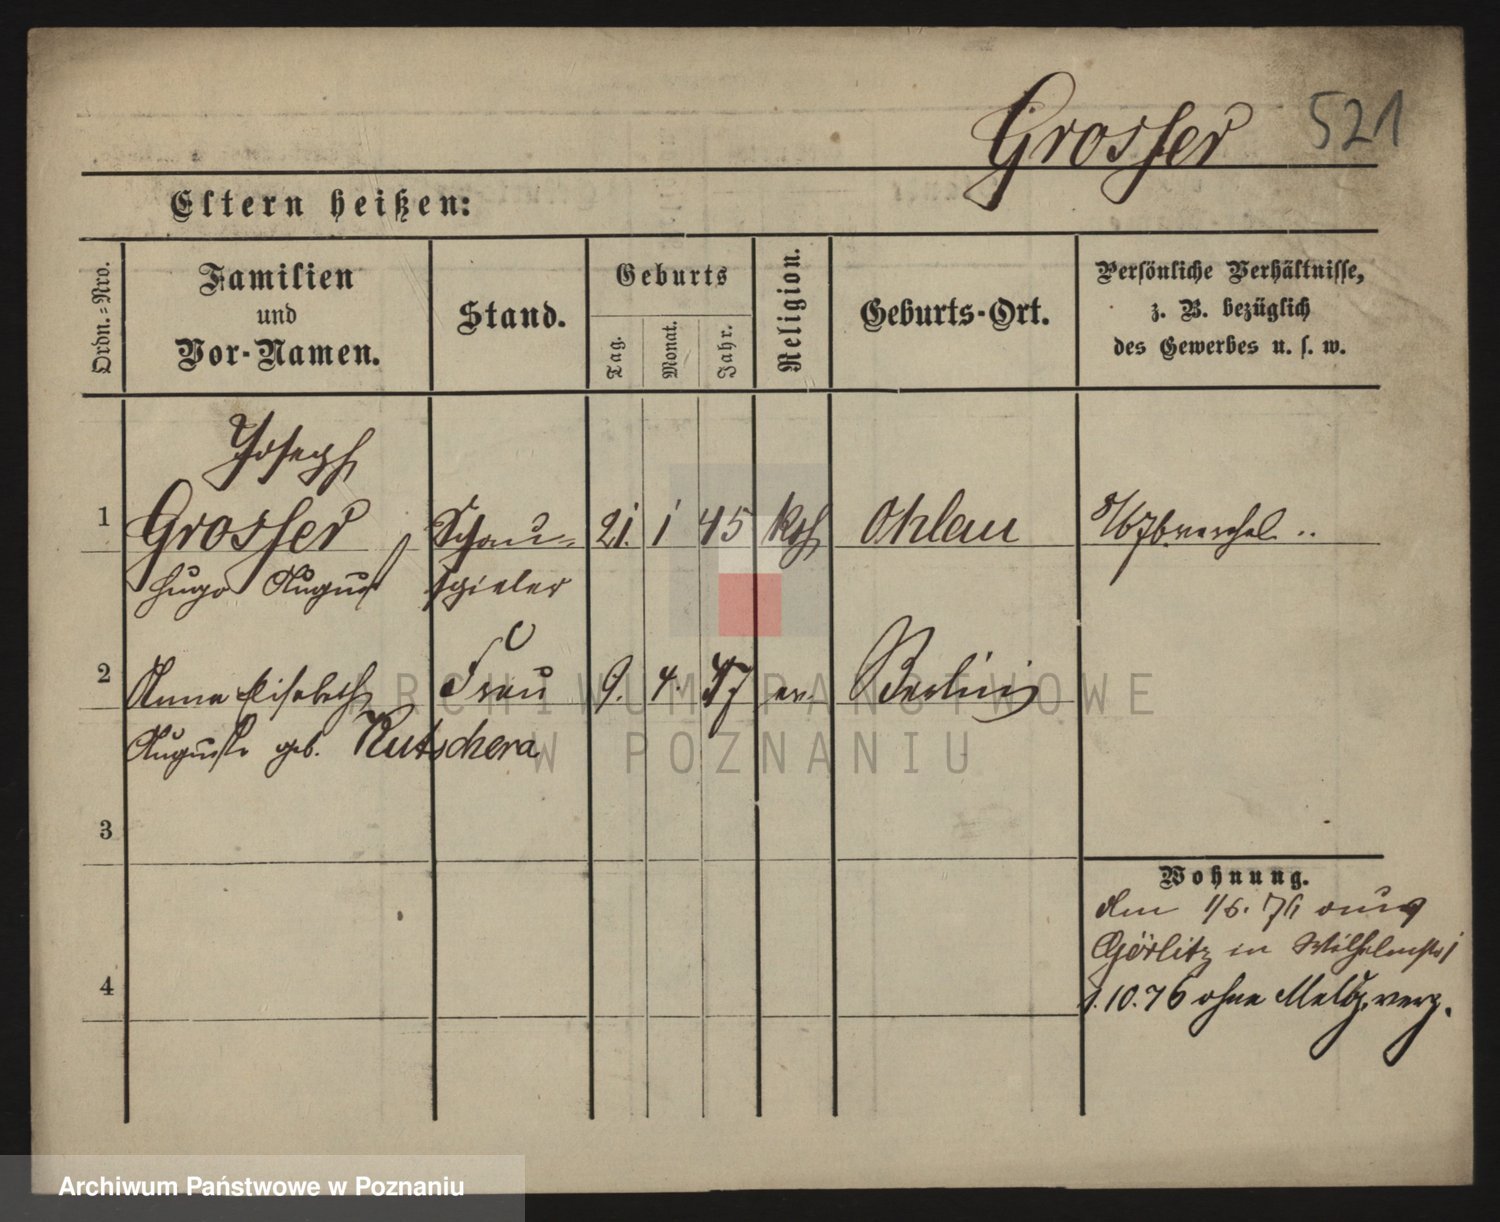 Grosser 521
Eltern heißen:
Ordn.=Nro.
Familien
und
Vor-Namen.
Stand.
Geburts
Tag.
Monat.
Jahr.
Religion.
Geburts-Ort.
Persönliche Verhältnisse,
z. B. bezüglich
des Gewerbes u. s. w.
Joseph
1 Grosser Schau- 21. 1 45 kth Ohlau 8/6 76
Hugo August spieler
2 Anna Elisabeth Frau 9. 4. 47 ev. Berlin
Auguste geb. Kutschera
3
Wohnung.
den 1/6. 76 aus
Görlitz in Wilhelmstr 1
4 1.10.76 ohne Meldg. verz.
ARCHIWUM PAŃSTWOWE
W POZNANIU
Archiwum Państwowe w Poznaniu